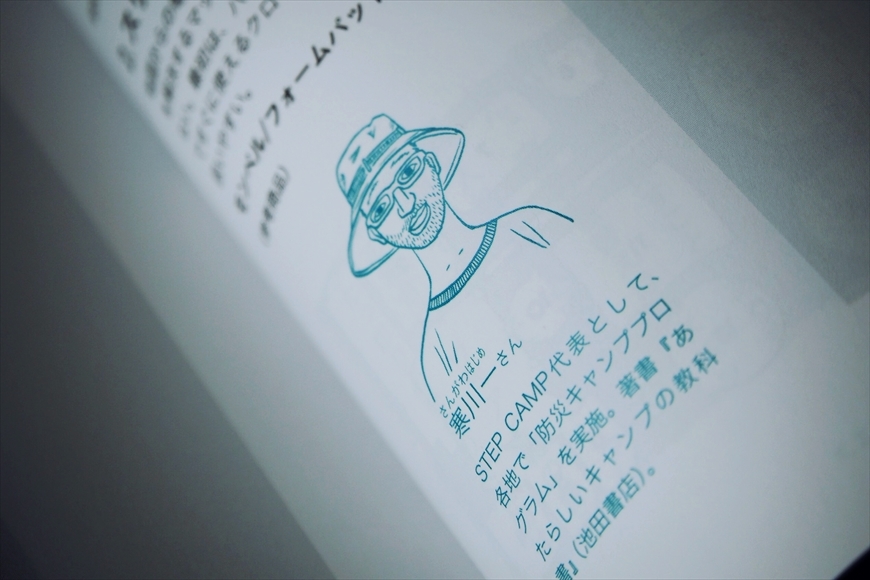 モンベル/フォームパッド
(参考商品)
さんがわはじめ
寒川一さん
STEP CAMP代表として、
各地で「防災キャンププロ
グラム」を実施。著書『あ
たらしいキャンプの教科
書』(池田書店)。